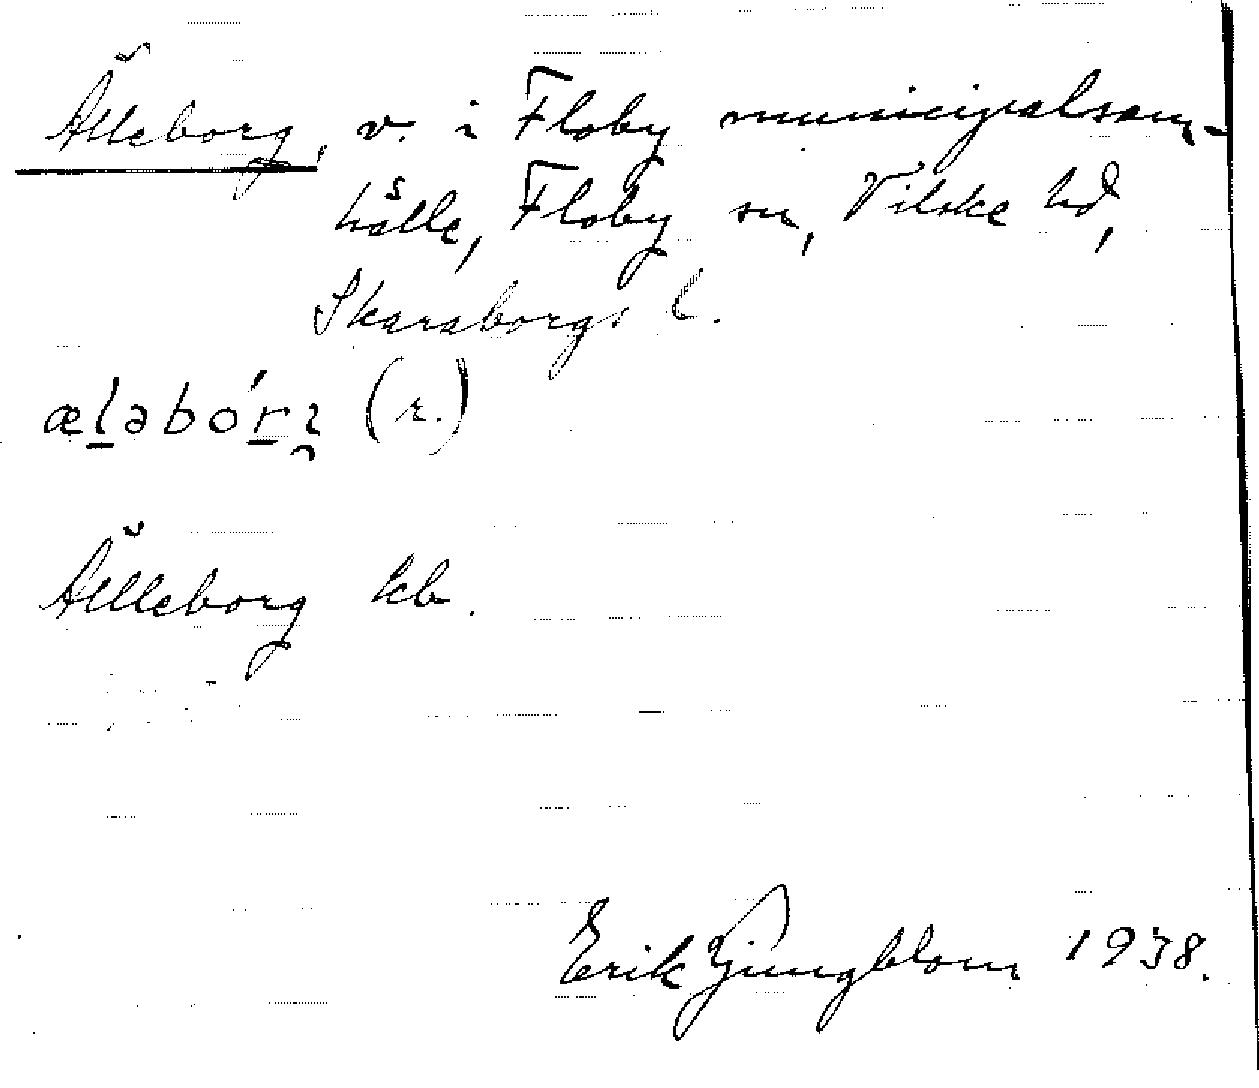 Älleborg, v. i Floby municipalsam-
hälle, Floby sn, Vilske hd,
Skaraborgs l.
æləbór (r.)
Älleborg kb.
Erik Ljungblom 1938.